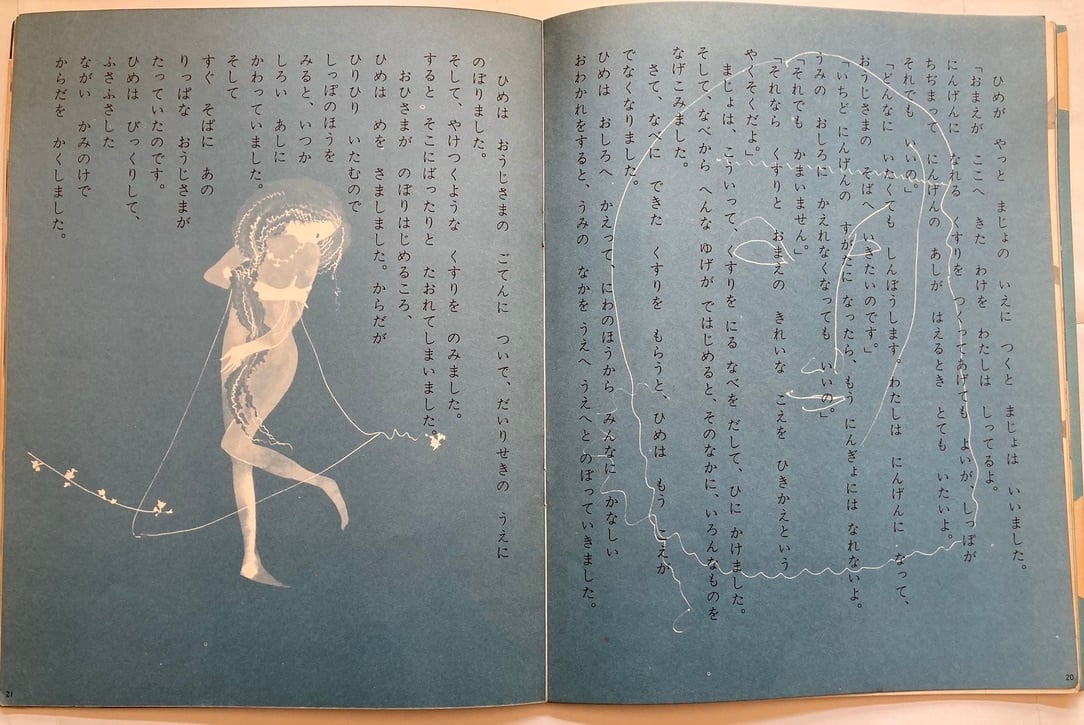 ひめが　やっと　まじょの　いえに　つくと　まじょは　いいました。
「おまえが　ここへ　きた　わけを　わたしは　しってるよ。
にんげんに　なれる　くすりを　つくってあげても　よいが、しっぽが
ちぢまって　にんげんの　あしが　はえるとき　とても　いたいよ。
それでも　いいの。」
「どんなに　いたくても　しんぼうします。わたしは　にんげんに　なって、
おうじさまの　そばへ　いきたいのです。」
「いちど　にんげんの　すがたに　なったら、もう　にんぎょには　なれないよ。
うみの　おしろに　かえれなくなっても　いいの。」
「それでも　かまいません。」
「それなら　くすりと　おまえの　きれいな　こえを　ひきかえという
やくそくだよ。」
まじょは、こういって、くすりを　にる　なべを　だして、ひに　かけました。
そして、なべから　へんな　ゆげが　ではじめると、そのなかに、いろんなものを
なげこみました。
さて、なべに　できた　くすりを　もらうと、ひめは　もう　こえが
でなくなりました。
ひめは　おしろへ　かえって、にわのほうから　みんなに　かなしい
おわかれをすると、うみの　なかを　うえへ　うえへと　のぼっていきました。
20
ひめは　おうじさまの　ごてんに　ついて、だいりせきの　うえに
のぼりました。
そして、やけつくような　くすりを　のみました。
すると　そこにばったりと　たおれてしまいました。
おひさまが　のぼりはじめるころ、
ひめは　めを　さましました。からだが
ひりひり　いたむので
しっぽのほうを
みると、いつか
しろい　あしに
かわっていました。
そして
すぐ　そばに　あの
りっぱな　おうじさまが
たっていたのです。
ひめは　びっくりして、
ふさふさした
ながい　かみのけで
からだを　かくしました。
21